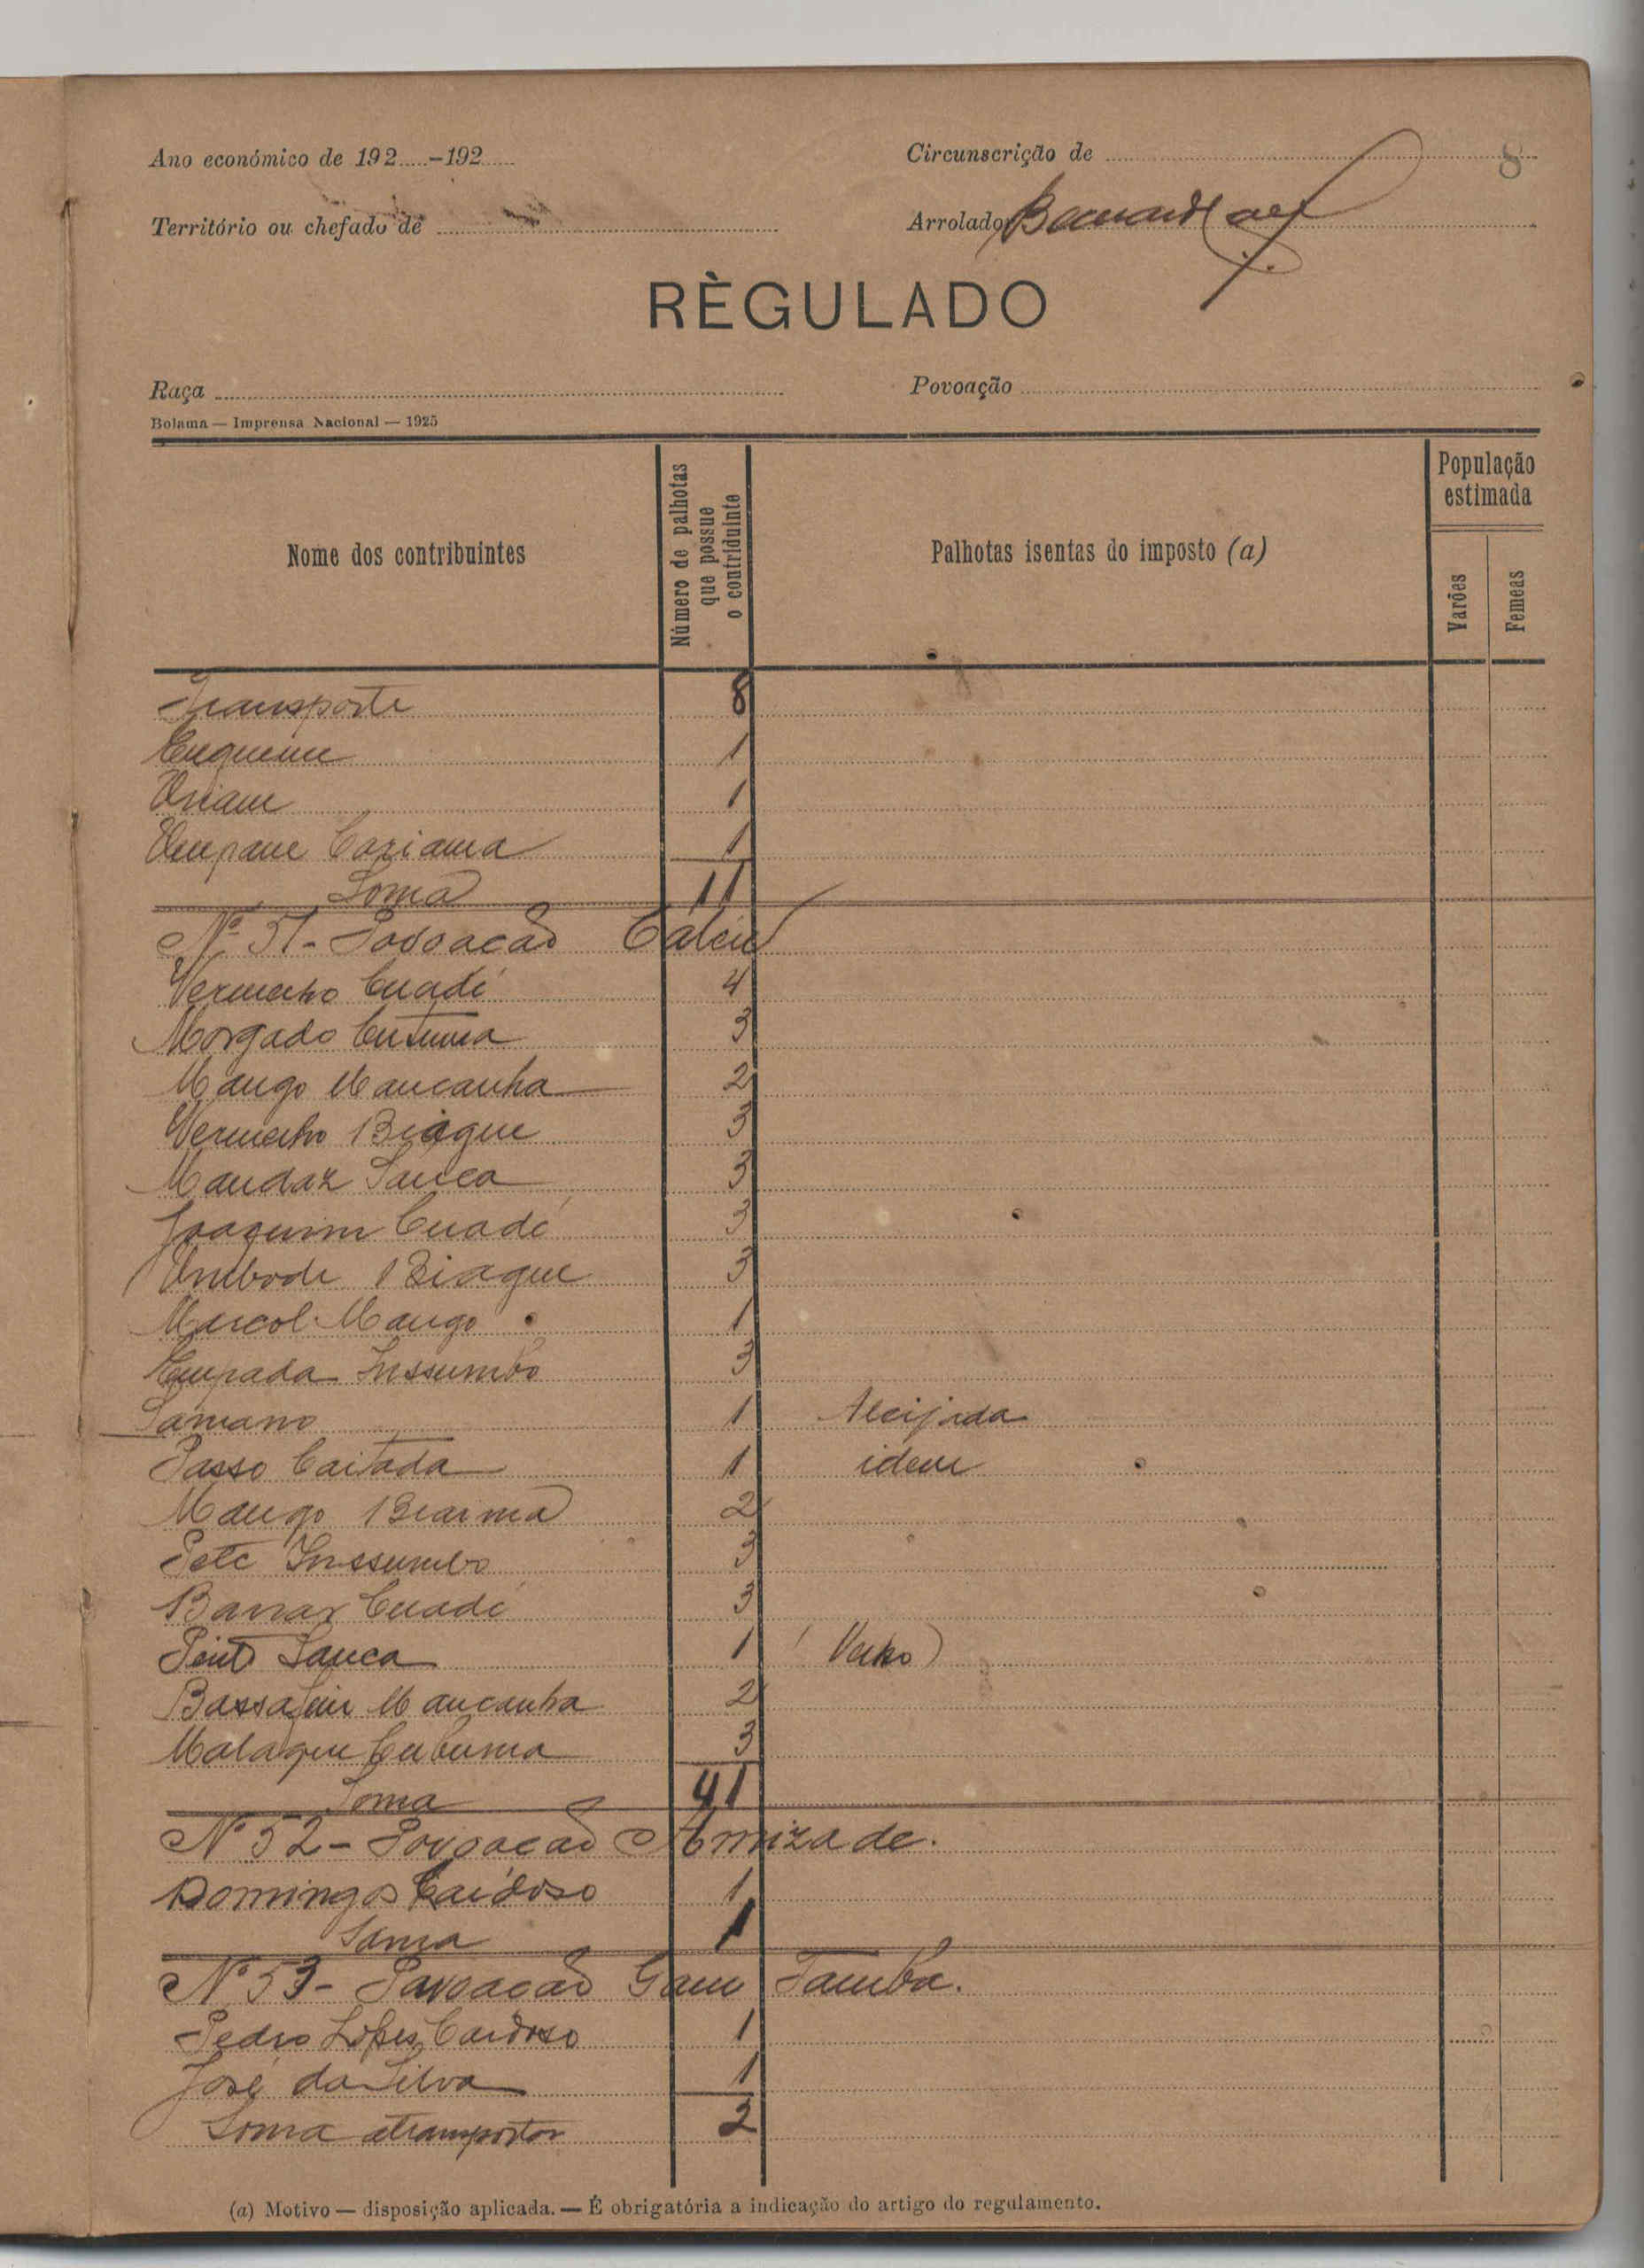 Ano económico de 192.....-192.....
Circunscrição de
8
Território ou chefado de
Arrolador
RÈGULADO
Raça
Povoação
Bolama — Imprensa Nacional — 1925
Nome dos contribuintes
Número de palhotas que possue o contriduinte
Palhotas isentas do imposto (a)
População estimada
Varões
Femeas
Transporte 8
1
1
1
Soma 11
Nº 51 - Povoacão
Vermelho Cuadé 4
Morgado 3
Mango Mancanha 2
Vermelho Biague 3
Mandaz Sanca 3
Joaquim Cuadé 3
Biague 3
Mango 1
Empada Inssumbo 3
Samano 1 Aleijada
Passo Caitada 1 idem
Mango Braima 2
Inssumbo 3
Cuadé 3
Sanca 1 (Velho)
Mancanha 2
3
Soma 41
Nº 52 - Povoacão Amizade.
Domingos Cardoso 1
Soma 1
Nº 53 - Povoacão Gam Tamba.
Pedro Lopes Cardoso 1
José da Silva 1
Soma atransportar 2
(a) Motivo — disposição aplicada. — É obrigatória a indicação do artigo do regulamento.